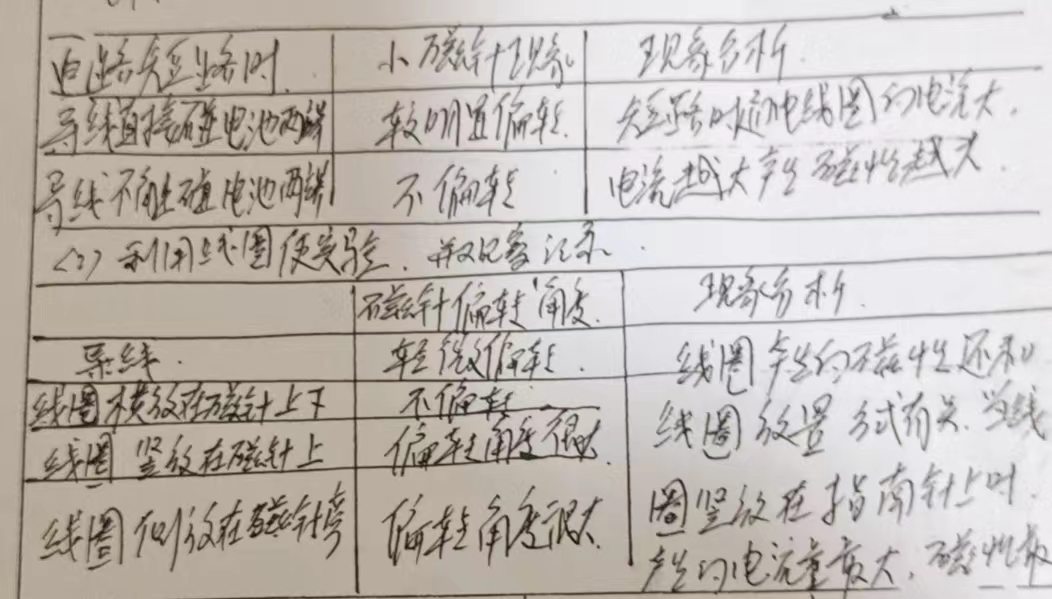 电路短路时 小磁针现象 现象分析.
导线直接碰电池两端 较明显偏转. 短路时流电线圈的电流大,
导线不能碰电池两端 不偏转 电流越大产生磁性越大.
<2> 利用线圈做实验. 并观察记录.
磁针偏转角度. 现象分析.
导线. 轻微偏转. 线圈产生的磁性还和
线圈横放在磁针上下 不偏转 线圈放置方式有关.当线
线圈竖放在磁针上 偏转角度很大. 圈竖放在指南针上时.
线圈侧放在磁针旁 偏转角度很大. 产生的电流量最大,磁性最